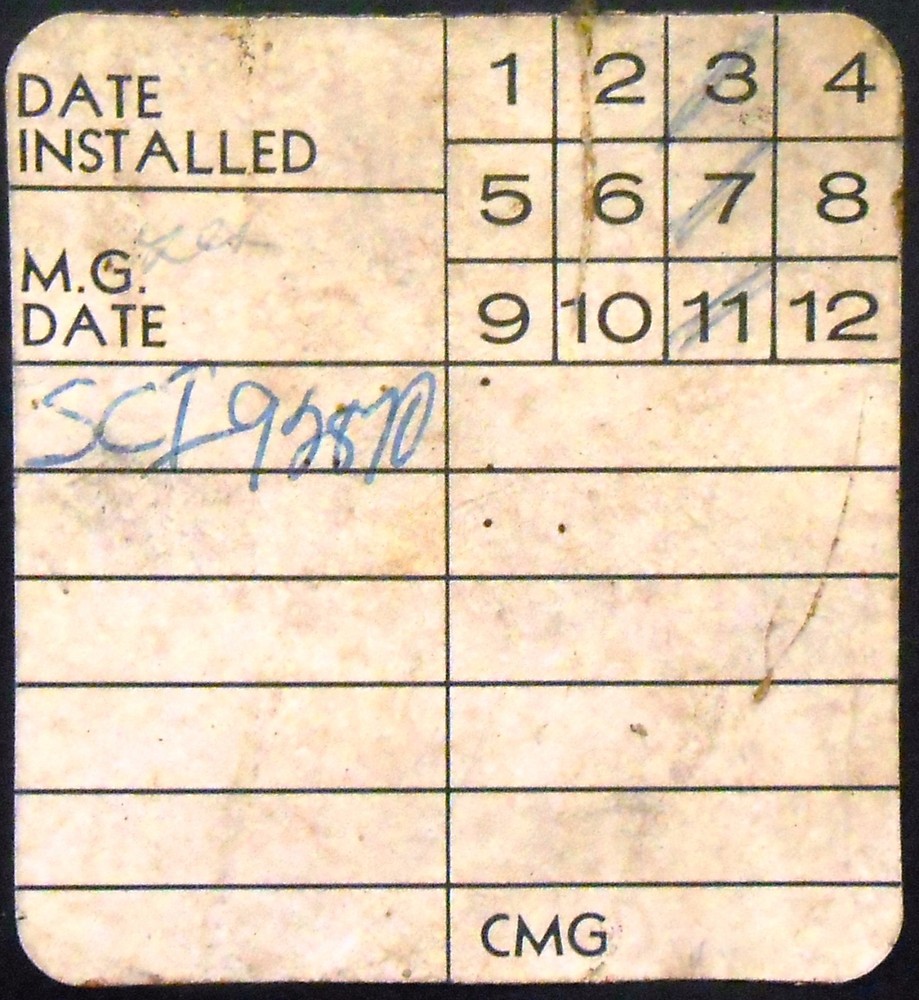 DATE
INSTALLED
1 2 3 4
5 6 7 8
9 10 11 12
M.G.
DATE
SCI 92870
CMG